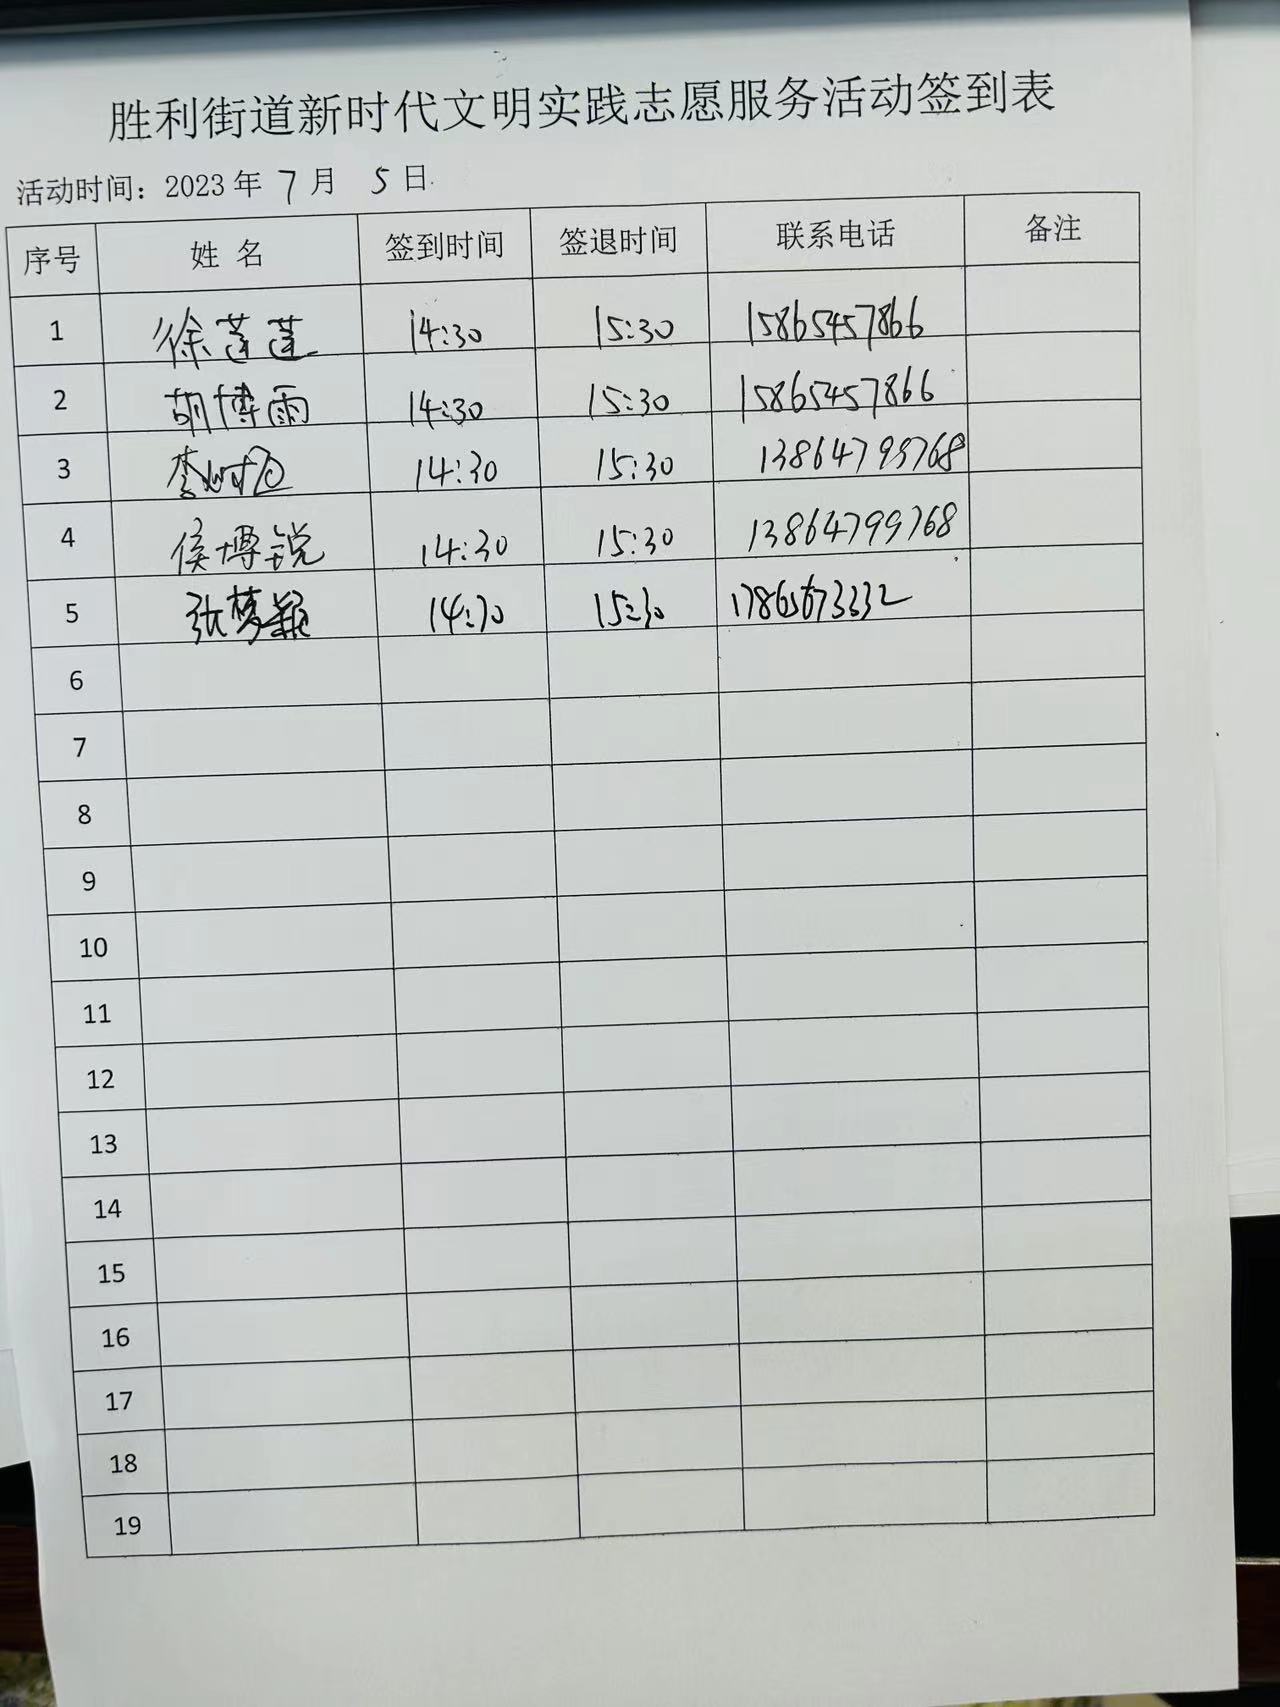 胜利街道新时代文明实践志愿服务活动签到表
活动时间：2023年 7 月 5 日
序号 姓 名 签到时间 签退时间 联系电话 备注
1 徐莲莲 14:30 15:30 15865457866
2 胡博雨 14:30 15:30 15865457866
3 李 14:30 15:30 13864799768
4 侯博锐 14:30 15:30 13864799768
5 张梦颖 14:30 15:30 17865673332
6
7
8
9
10
11
12
13
14
15
16
17
18
19